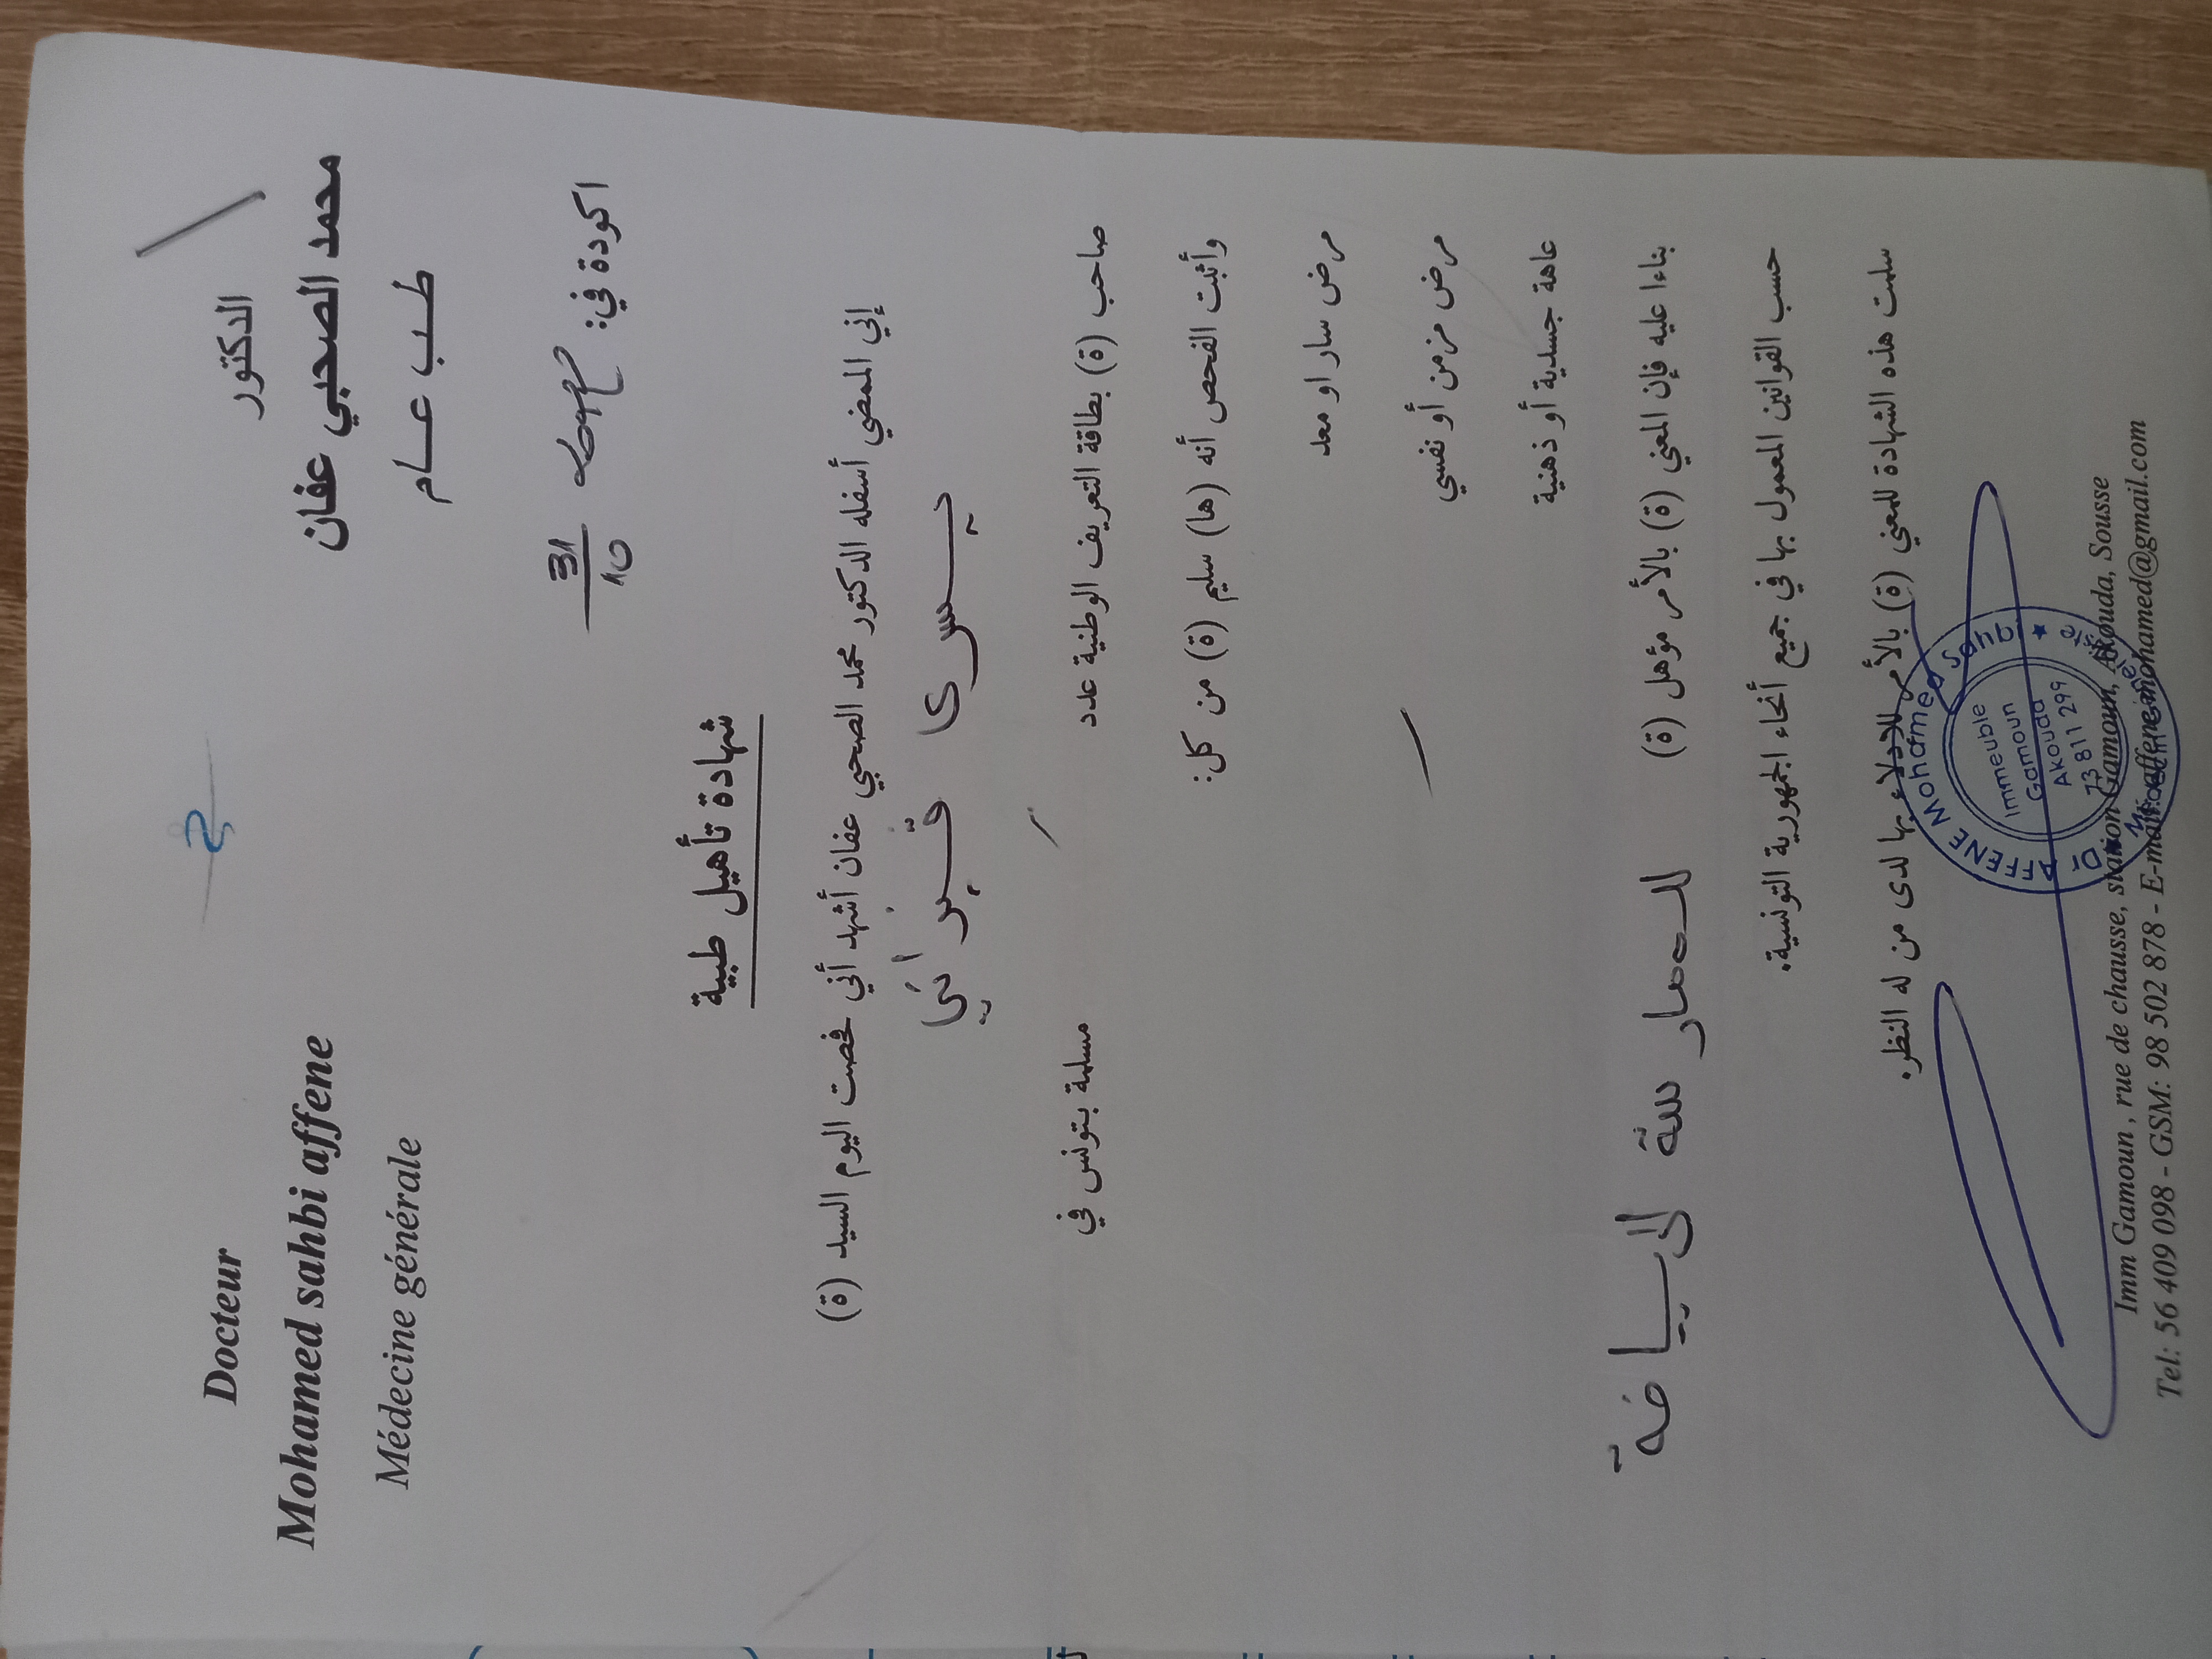 Docteur
Mohamed sahbi affene
Médecine générale
الدكتور
محمد الصحبي عفان
طب عام
اكودة في:
شهادة تأهيل طبية
إني الممضي أسفله الدكتور محمد الصحبي عفان أشهد أني فحصت اليوم السيد (ة)
يسرى قيزاني
صاحب (ة) بطاقة التعريف الوطنية عدد
مسلمة بتونس في
وأثبت الفحص أنه (ها) سليم (ة) من كل:
مرض سار او معد
مرض مزمن أو نفسي
عاهة جسدية أو ذهنية
بناءا عليه فإن المعني (ة) بالأمر مؤهل (ة) الرياضة
حسب القوانين المعمول بها في جميع أنحاء الجمهورية التونسية.
سلمت هذه الشهادة للمعني (ة) بالأمر للادلاء بها لدى من له النظر.
AFFENE Mohamed Sahbi
Immeuble
Gamoun
Akouda
73 811 299
Imm Gamoun , rue de chausse, station Gamoun, Akouda, Sousse
Tel: 56 409 098 - GSM: 98 502 878 - E-mail: affene.mohamed@gmail.com